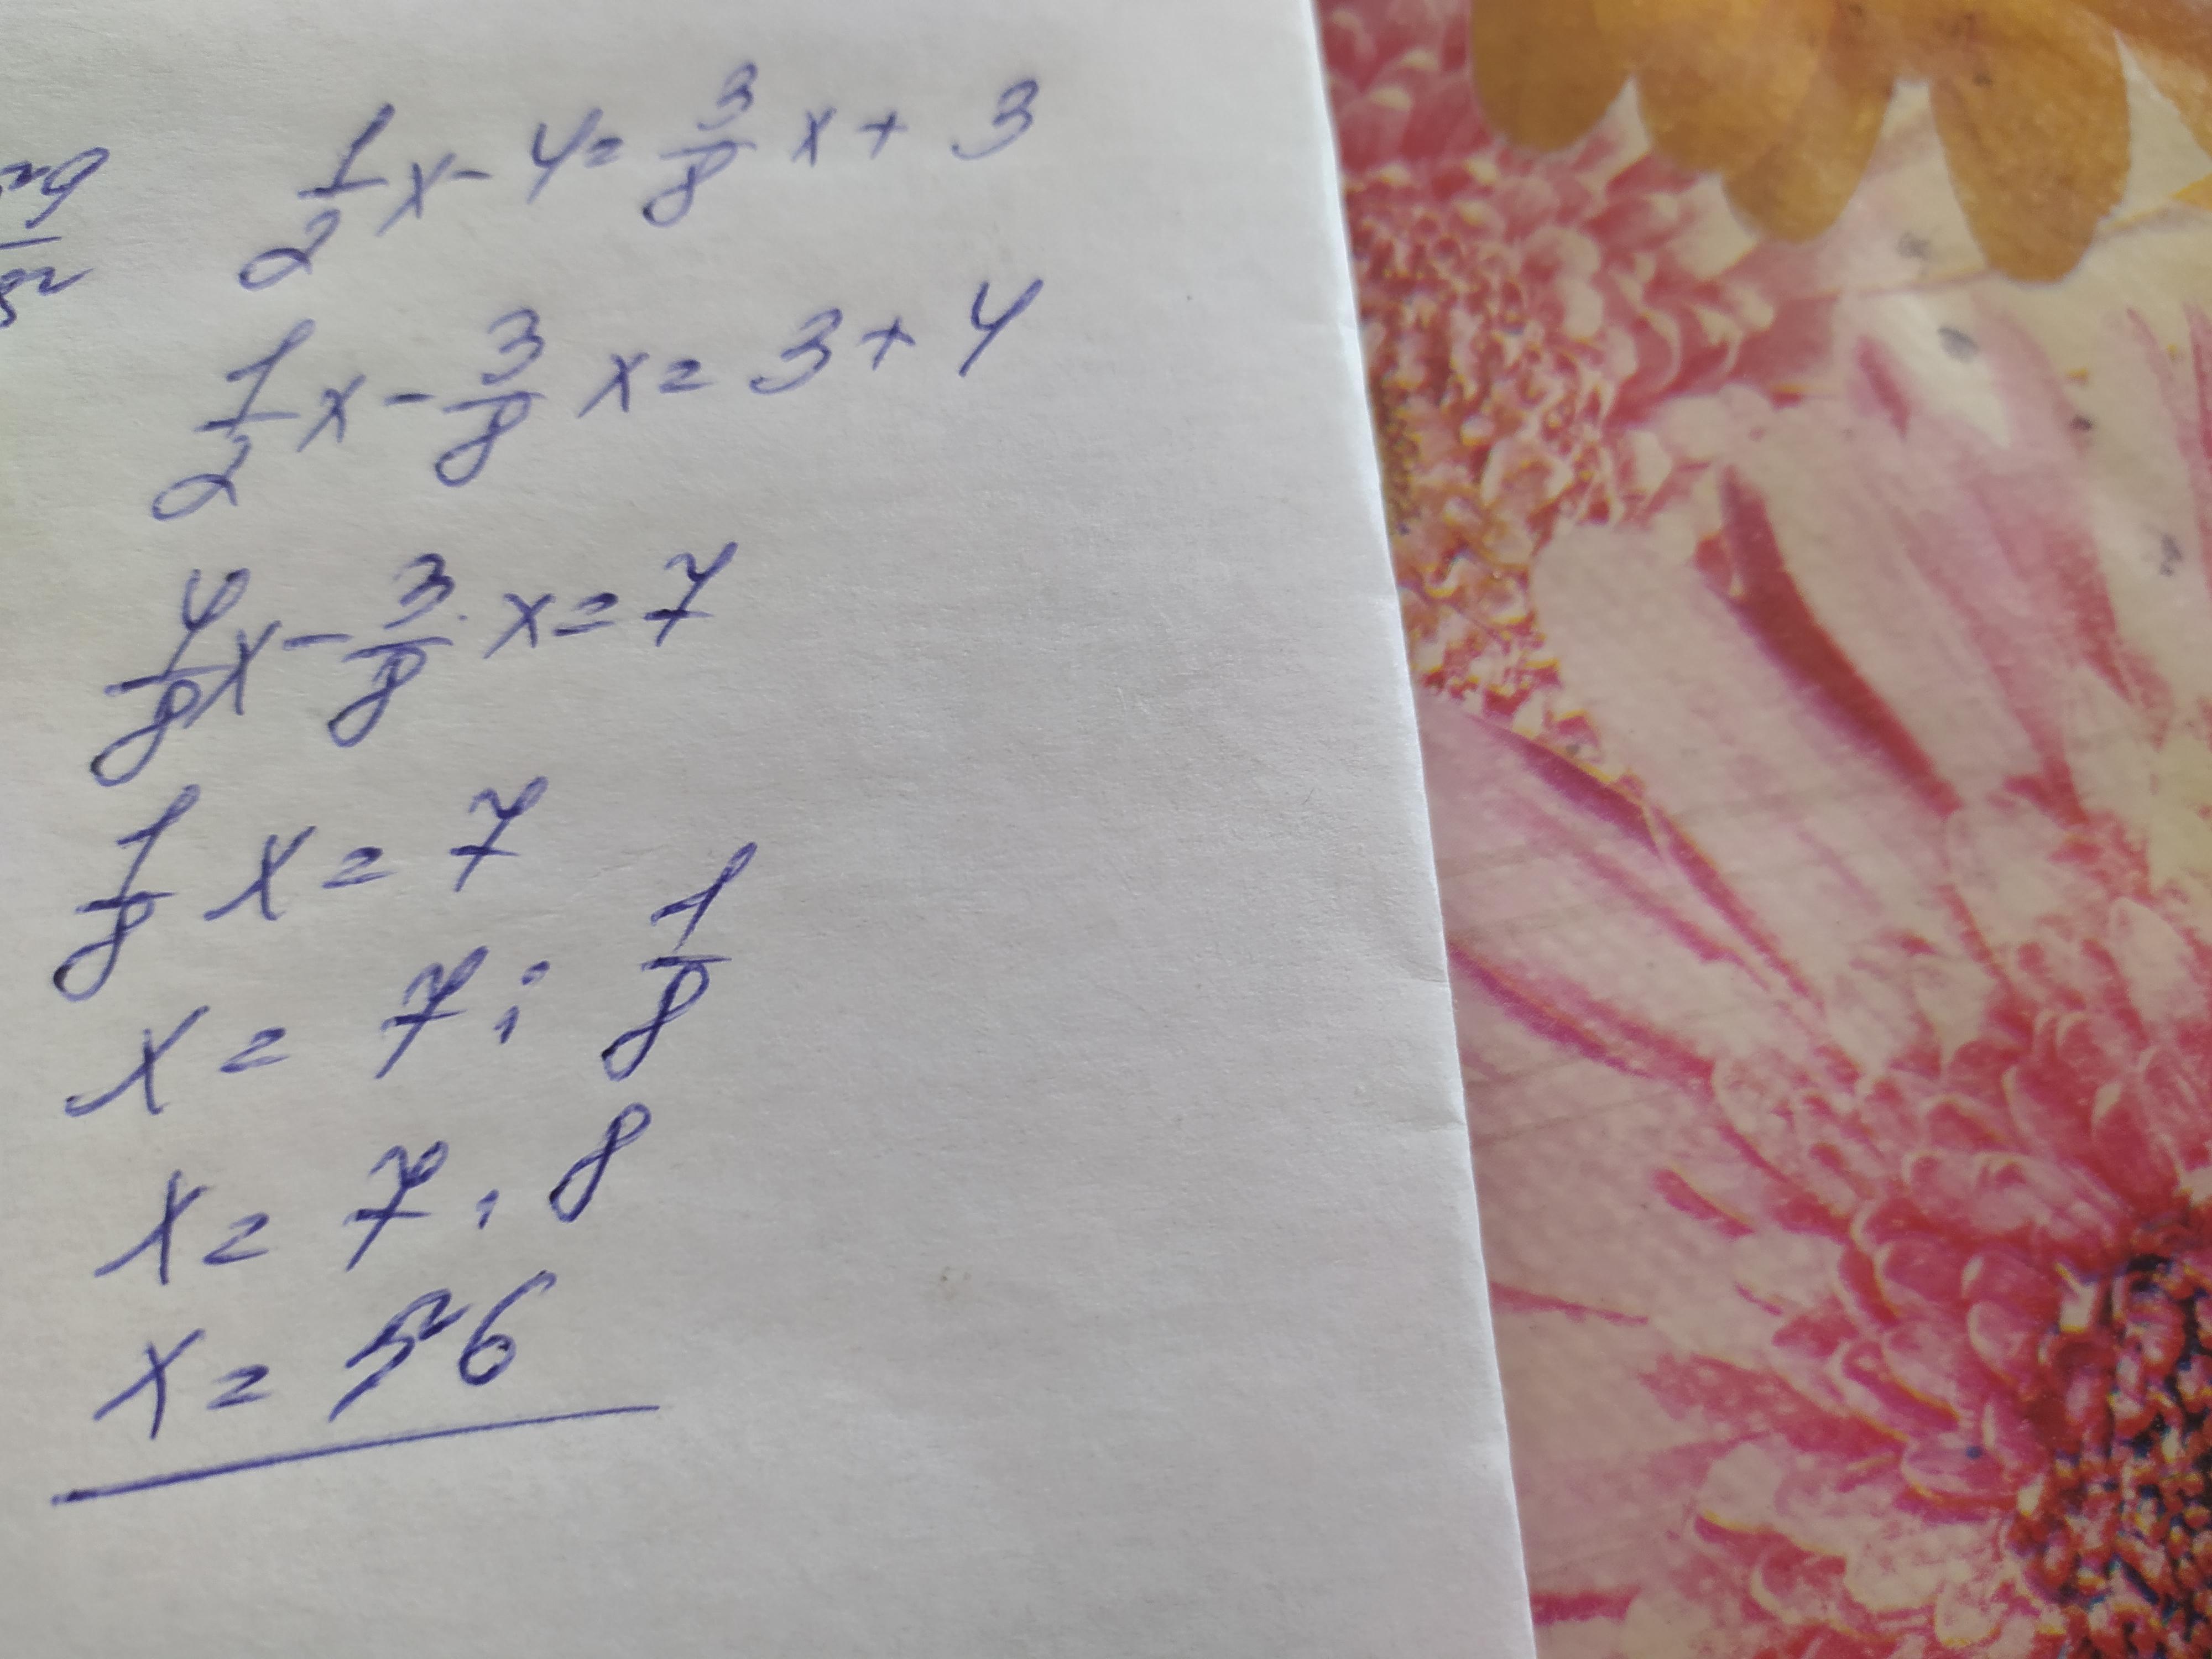 1/2 x - 4 = 3/8 x + 3
1/2 x - 3/8 x = 3 + 4
4/8 x - 3/8 x = 7
1/8 x = 7
x = 7 : 1/8
x = 7 . 8
x = 56